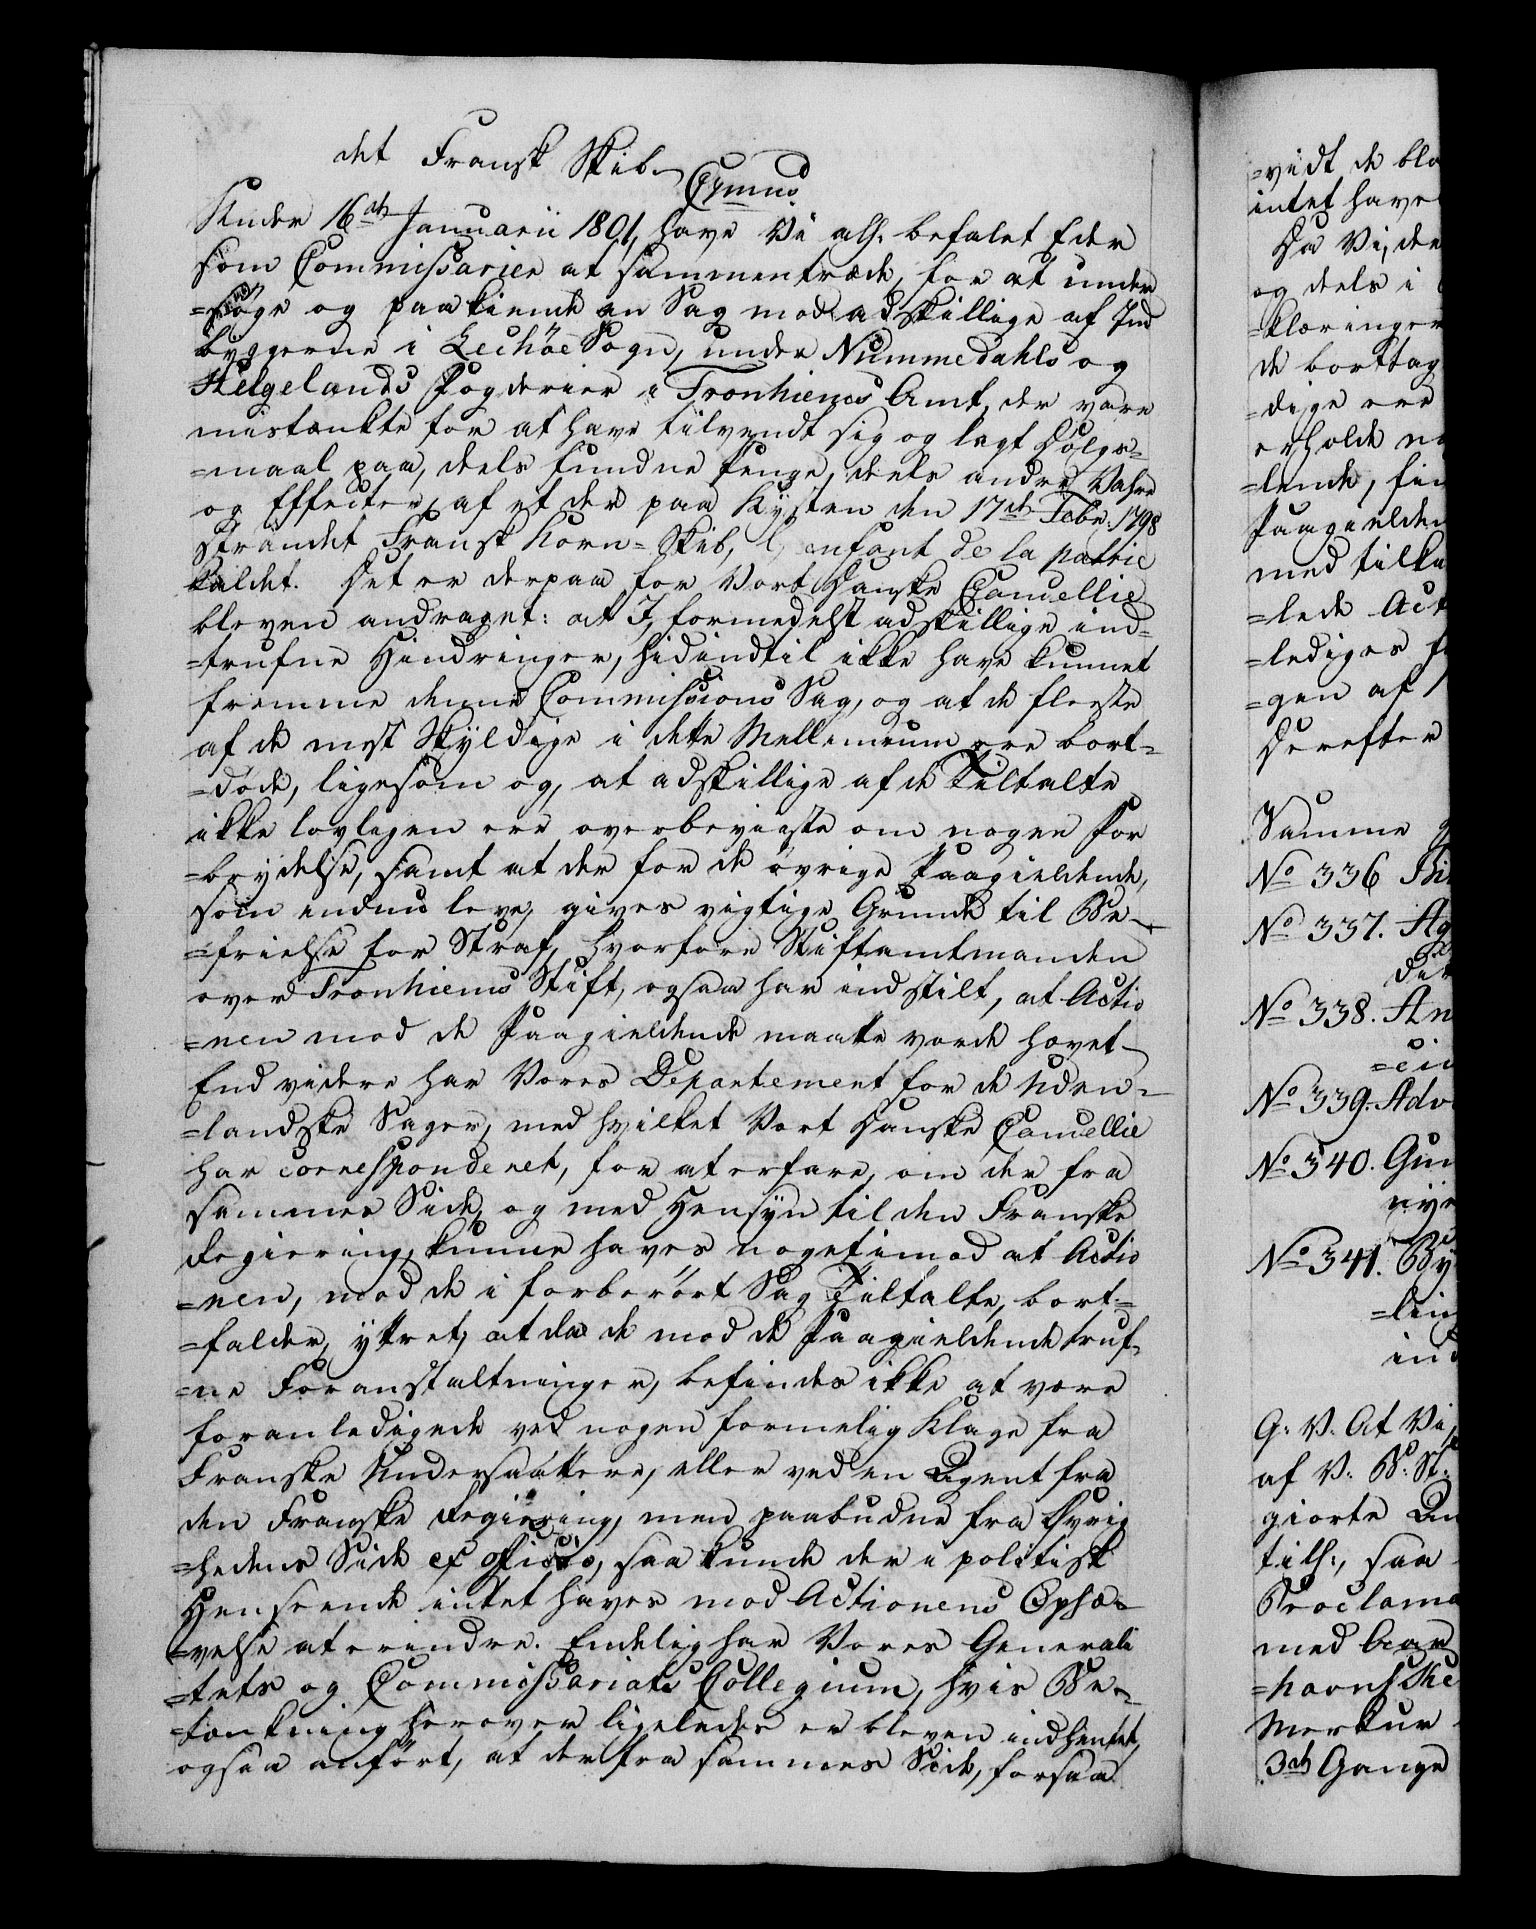 det Fransk Skib
Cxmus
Under 16de Januarii 1801, have Vi alh: befalet Eder
som Commissarier at sammentræde, for at under
=søge og paakiende en Sag mod adskillige af Ind
byggerne i Lechöe Sogn, under Nummedahls og
Helgelands Fogderier i Tronhiems Amt, der vare
mistænkte for at have tilvendt sig og lagt Dølgs=
=maal paa, deels fundne Penge, deels andre Vahre
og Effecter, af et der paa Kysten den 17de Febr: 1798
strandet Fransk Korn=Skib, l'enfant de la patrie
kaldet. Det er derpaa for Vort Danske Cancellie
bleven andraget: at I, formedelst adskillige ind=
=trufne Hindringer, hidindtil ikke have kunnet
fremme denne Commissions Sag, og at de fleste
af de mest Skyldige i dette Mellemrum ere bort=
=døde, ligesom og, at adskillige af de Tiltalte
ikke lovligen ere overbeviiste om nogen For
=brydelse, samt at der for de øvrige Paagieldende,
som endnu leve, gives vigtige Grunde til Be=
=frielse for Straf, hvorfore Stiftamtmanden
over Tronhiems Stift, ogsaa har indstilt, at Actio
=nen mod de Paagieldende maatte vorde hævet.
End videre har Vores Departement for de Uden=
=landske Sager, med hvilket Vort Danske Cancellie
har corresponderet, for at erfare, om der fra
sammes Side, og med Hensyn til den Franske
Regiering, kunne haves noget imod at Actio
=nen, mod de i forberørt Sag Tiltalte, bort=
=falder, yttret, at da de mod de Paagieldende truf=
=ne Foranstaltninger, befindes ikke at være
foranledigede ved nogen formelig Klage fra
Franske Undersaatter, eller ved en Agent fra
den Franske Regiering, men paabudne fra Øvrig
=hedens Side ex officio, saa kunde der i politisk
Henseende intet haves mod Actionens Ophæ=
=velse at erindre. Endelig har Vores Generali
=tets og Commissariats Collegium, hvis Be=
=tænkning herover ligeledes er bleven indhentet,
ogsaa anført, at der fra sammes Side, forsaa
=vidt de blo
intet have
Da Vi, de
og deels i
=klæringer
de borttag
=dige ere
erholde no
=lende, fin
Paagielden
med tilka
=lede Act
=lediges f
=gen af
Derefter
Samme g
No 336 Bi
No 337. Ag
No 338. An
=ci
No 339. Adv
No 340. Gun
nye
No 341. By
=lin
ind
G: V: At Vi,
af V: B: St:
giorte An
tilh:, saa
Proclama
med Aar
=havnske
Merkur
3de Gange